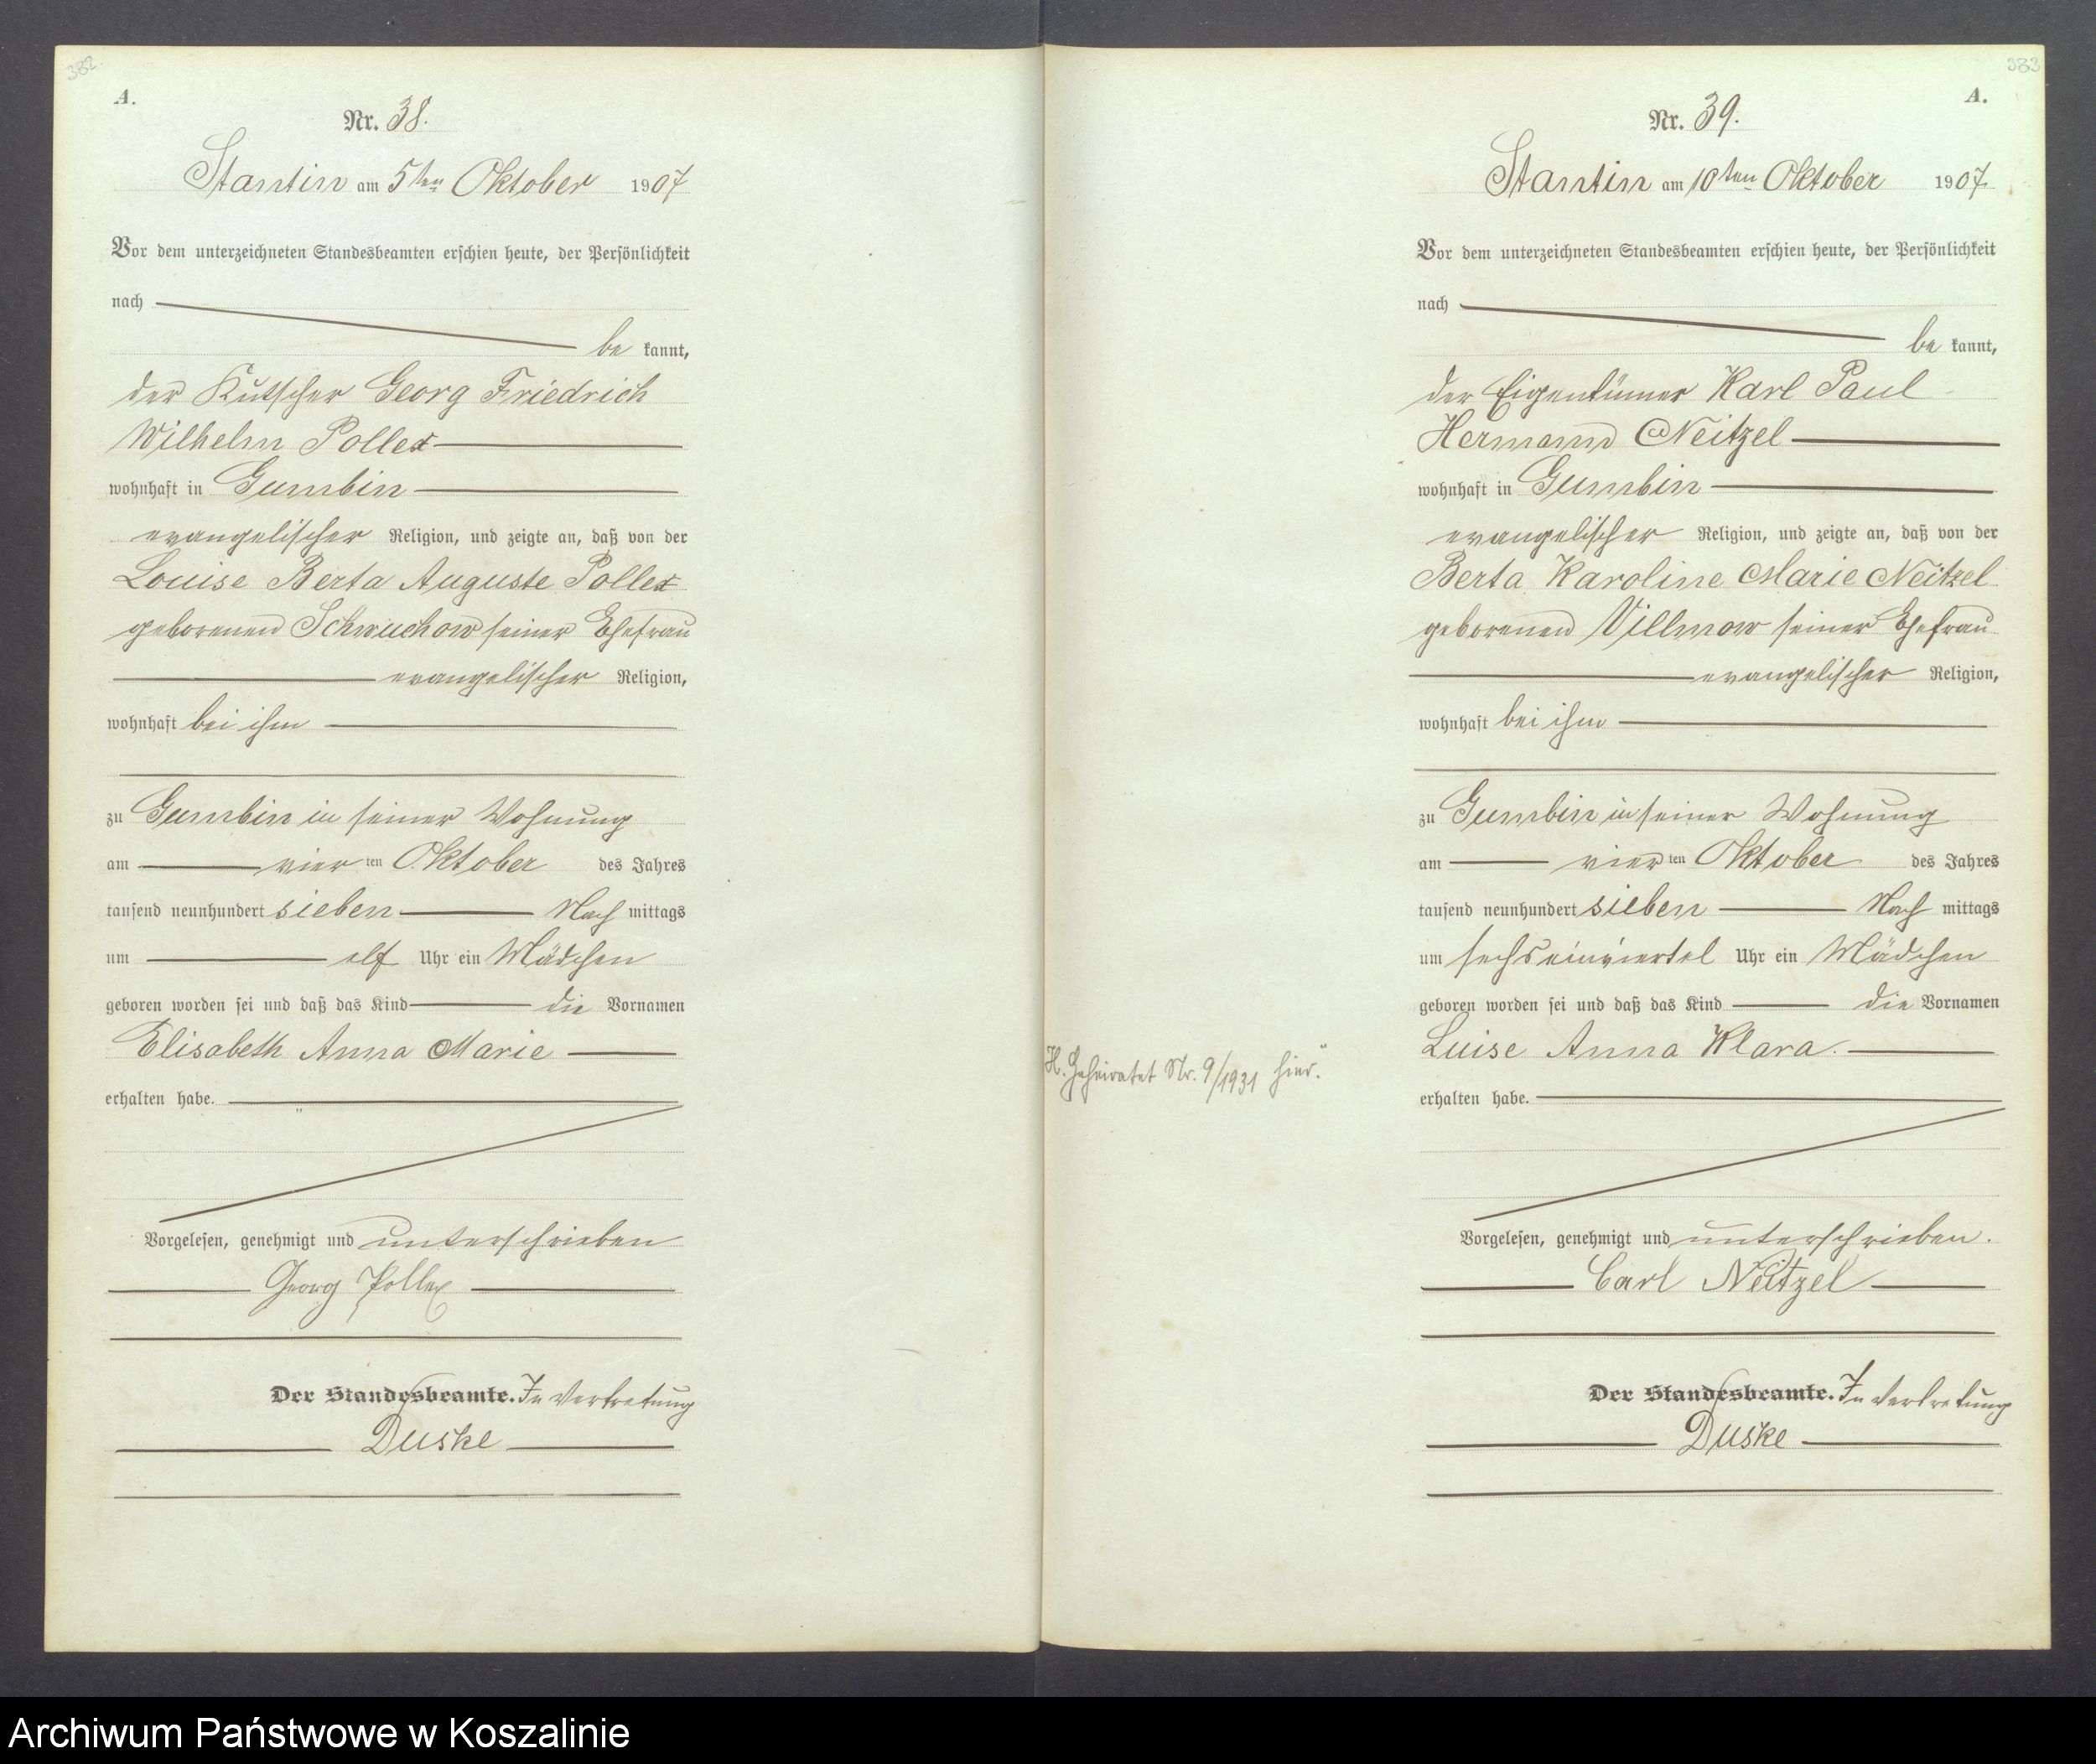 382.
A.
Nr. 38.
Stantin am 5ten Oktober 1907
Vor dem unterzeichneten Standesbeamten erschien heute, der Persönlichkeit
nach
be kannt,
der Kutscher Georg Friedrich
Wilhelm Pollex
wohnhaft in Gumbin
evangelischer Religion, und zeigte an, daß von der
Louise Berta Auguste Pollex
geborenen Schwuchow seiner Ehefrau
evangelischer Religion,
wohnhaft bei ihm
zu Gumbin in seiner Wohnung
am vier ten Oktober des Jahres
tausend neunhundert sieben Nach mittags
um elf Uhr ein Mädchen
geboren worden sei und daß das Kind die Vornamen
Elisabeth Anna Marie
erhalten habe.
Vorgelesen, genehmigt und unterschrieben
Georg Pollex
Der Standesbeamte. In Vertretung
Duske
383
A.
Nr. 39.
Stantin am 10ten Oktober 1907
Vor dem unterzeichneten Standesbeamten erschien heute, der Persönlichkeit
nach
be kannt,
der Eigentümer Karl Paul
Hermann Neitzel
wohnhaft in Gumbin
evangelischer Religion, und zeigte an, daß von der
Berta Karoline Marie Neitzel
geborenen Villmow seiner Ehefrau
evangelischer Religion,
wohnhaft bei ihm
zu Gumbin in seiner Wohnung
am vier ten Oktober des Jahres
tausend neunhundert sieben Nach mittags
um sechseinviertel Uhr ein Mädchen
geboren worden sei und daß das Kind die Vornamen
Luise Anna Klara.
erhalten habe.
H. Geheiratet Nr. 9/1931 hier."
Vorgelesen, genehmigt und unterschrieben.
Carl Neitzel
Der Standesbeamte. In Vertretung
Duske
Archiwum Państwowe w Koszalinie